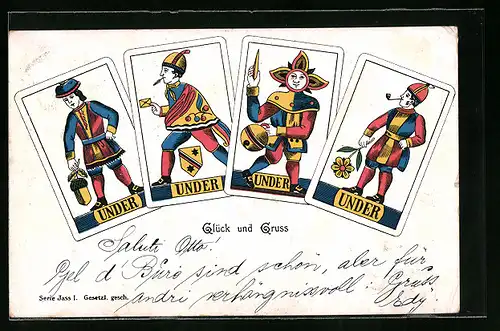 UNDER
UNDER
UNDER
UNDER
Glück und Gruss
Saluti Otto!
Gel d' Büro sind schön, aber für
andri verhängnisvoll. Gruss
Edy.
Serie Jass I. Gesetzl. gesch.